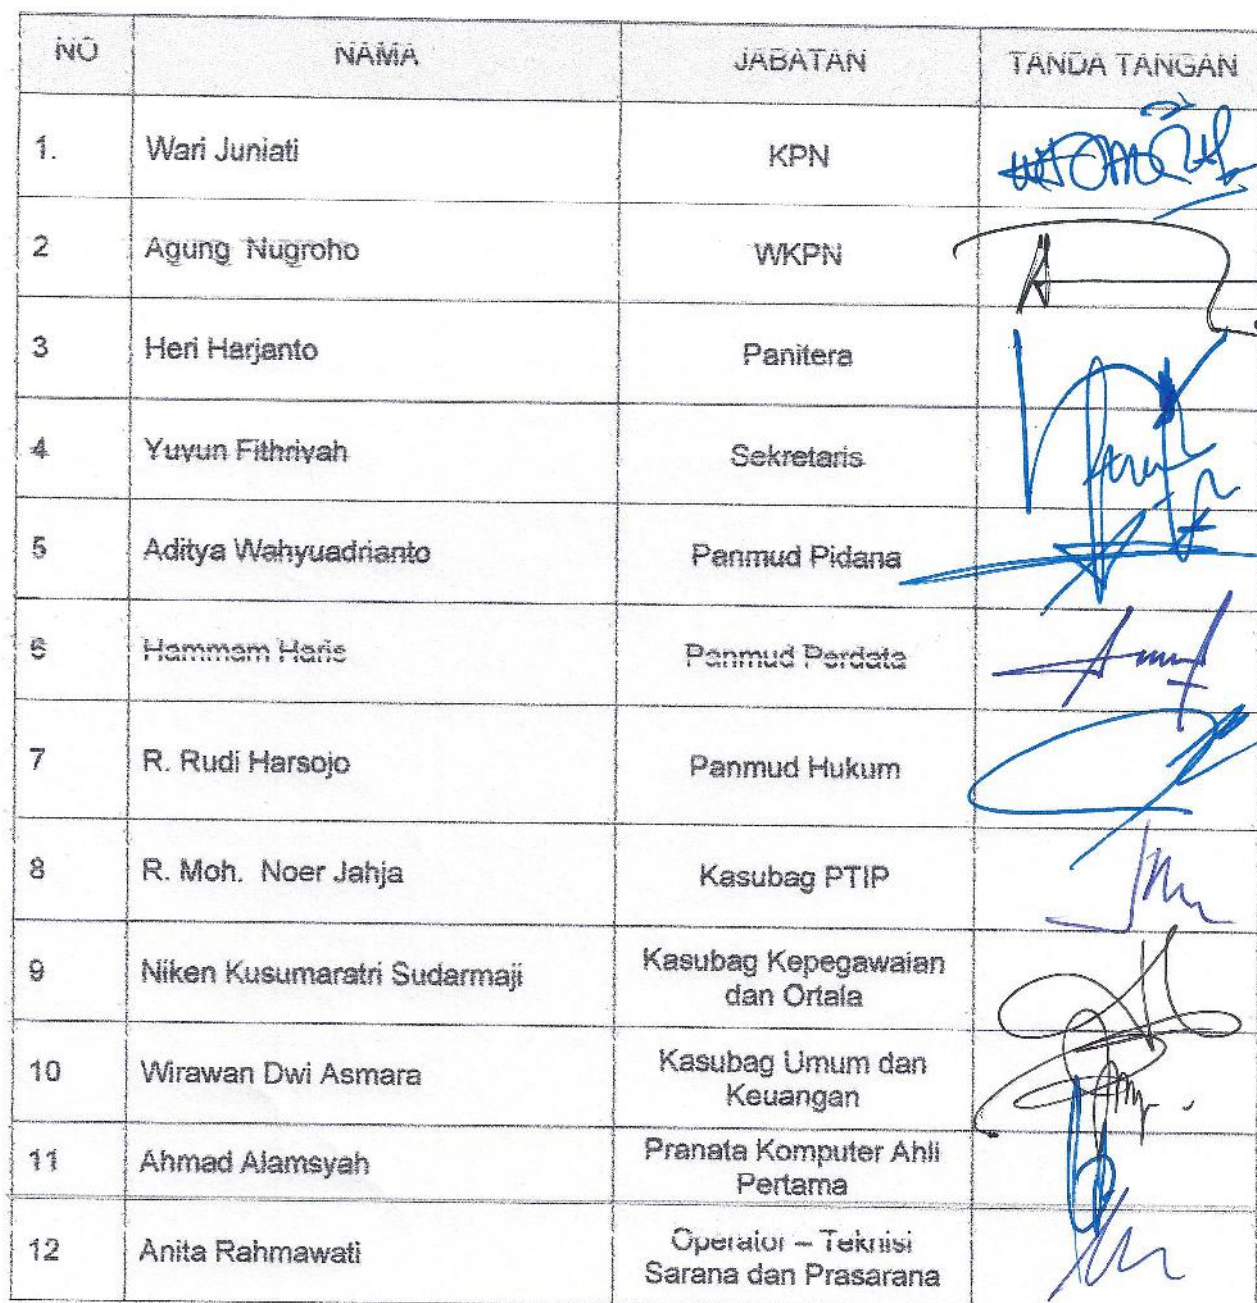 NO NAMA JABATAN TANDA TANGAN
1. Wari Juniati KPN
2 Agung Nugroho WKPN
3 Heri Harjanto Panitera
4 Yuyun Fithriyah Sekretaris
5 Aditya Wahyuadrianto Panmud Pidana
6 Hammam Haris Panmud Perdata
7 R. Rudi Harsojo Panmud Hukum
8 R. Moh. Noer Jahja Kasubag PTIP
9 Niken Kusumaratri Sudarmaji Kasubag Kepegawaian
dan Ortala
10 Wirawan Dwi Asmara Kasubag Umum dan
Keuangan
11 Ahmad Alamsyah Pranata Komputer Ahli
Pertama
12 Anita Rahmawati Operator – Teknisi
Sarana dan Prasarana